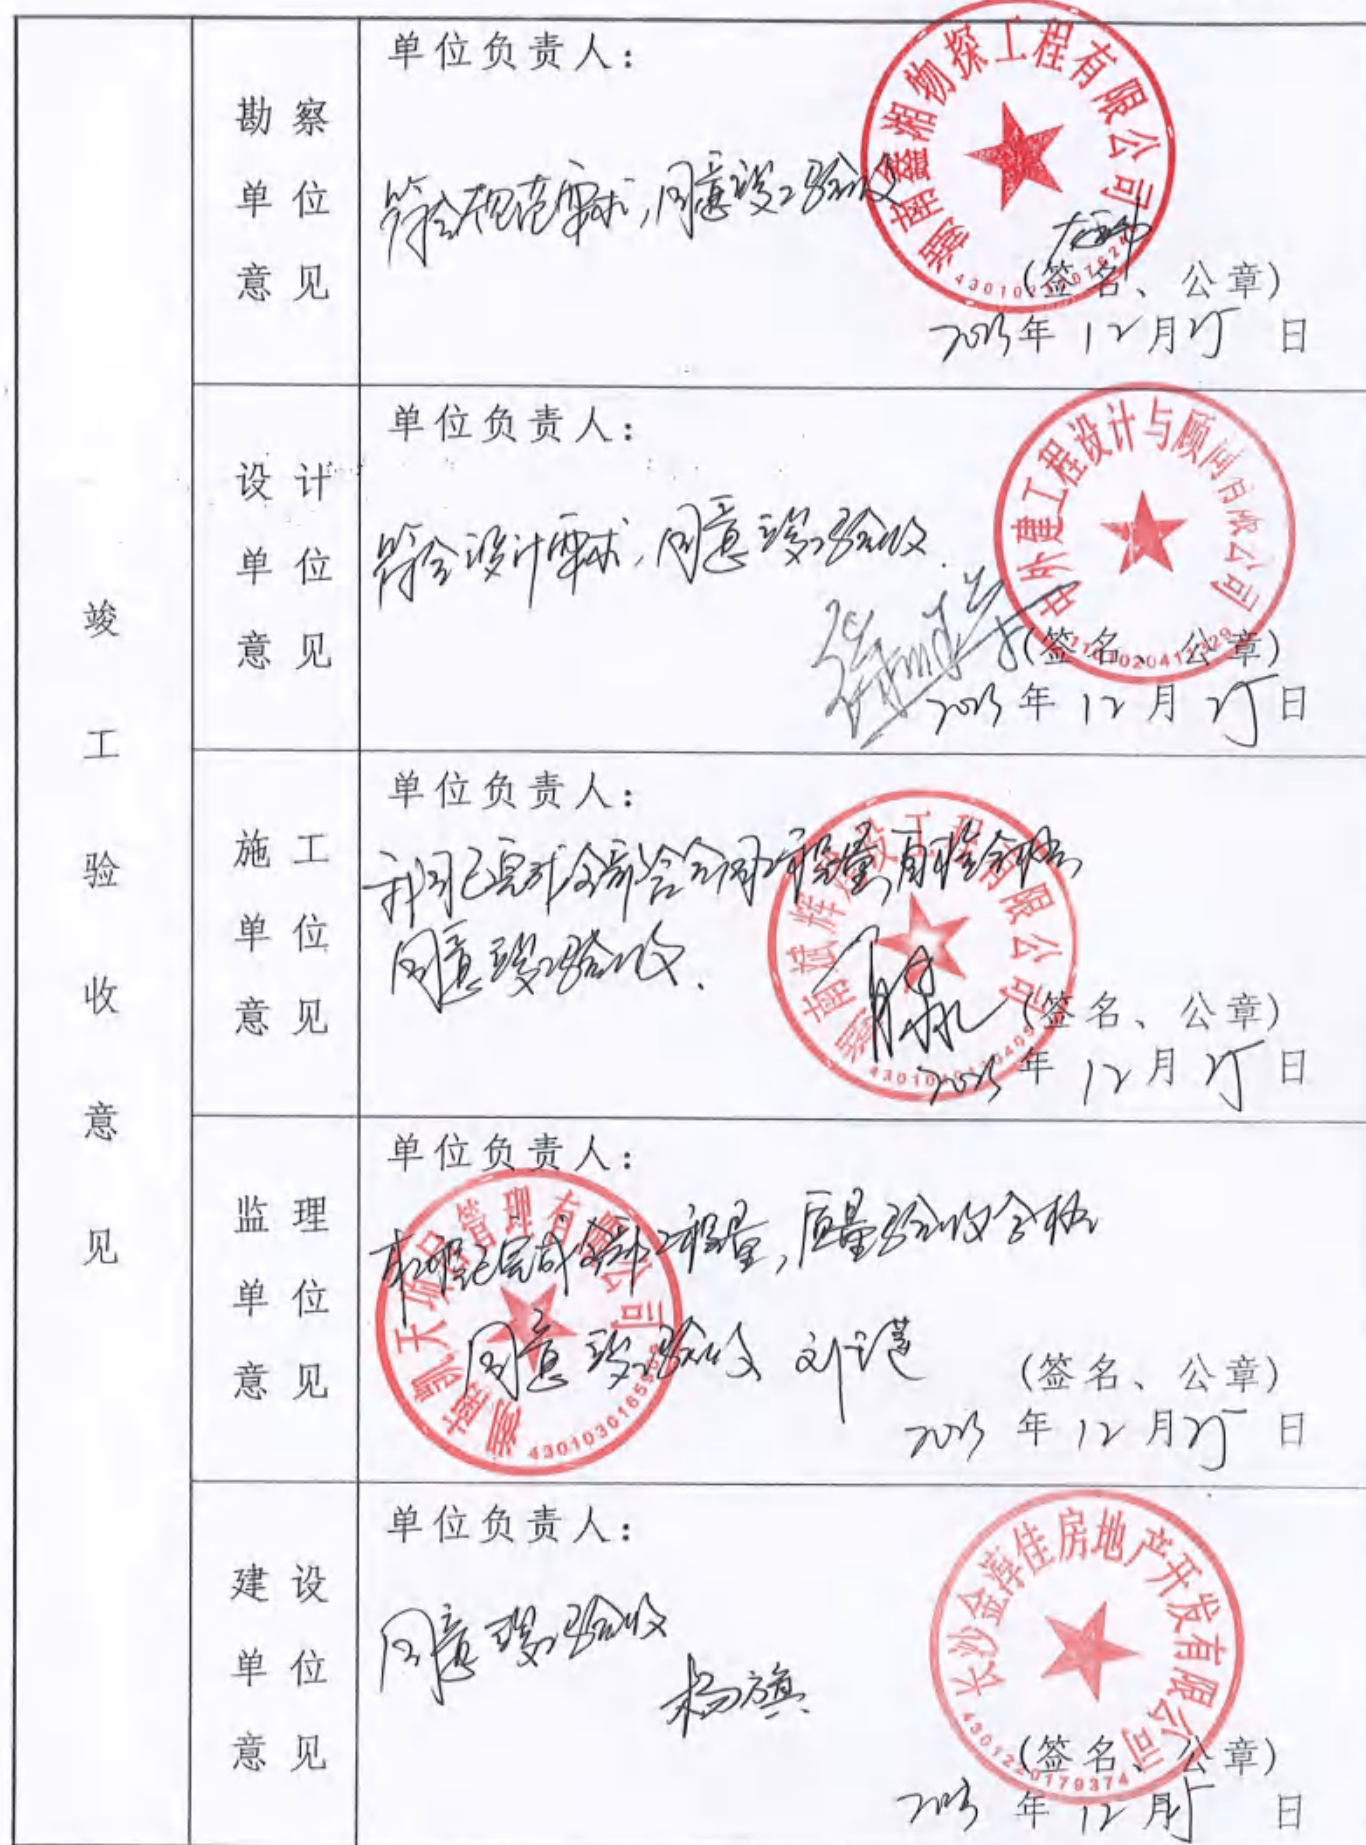 竣工验收意见
勘察单位意见
单位负责人：
符合规范要求，同意竣工验收
湖南鑫湘物探工程有限公司
(签名、公章)
2023年12月25日
设计单位意见
单位负责人：
符合设计要求，同意竣工验收
中外建工程设计与顾问有限公司
(签名、公章)
2023年12月25日
施工单位意见
单位负责人：
我司已完成全部合同工程量，自检合格，
同意竣工验收.
湖南斌辉建设工程有限公司
(签名、公章)
2023年12月25日
监理单位意见
单位负责人：
本工程已完成全部工程量，质量验收合格
同意竣工验收
湖南凯天项目管理有限公司
43010301659
(签名、公章)
2023年12月25日
建设单位意见
单位负责人：
同意竣工验收
杨旗
长沙金淳佳房地产开发有限公司
4301220179374
(签名、公章)
2023年12月25日